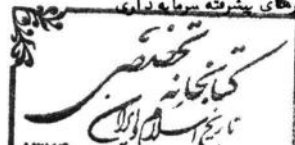 های پیشرفته سرمایه داری
کتابخانه تخصصی
تاریخ اسلام و ایران